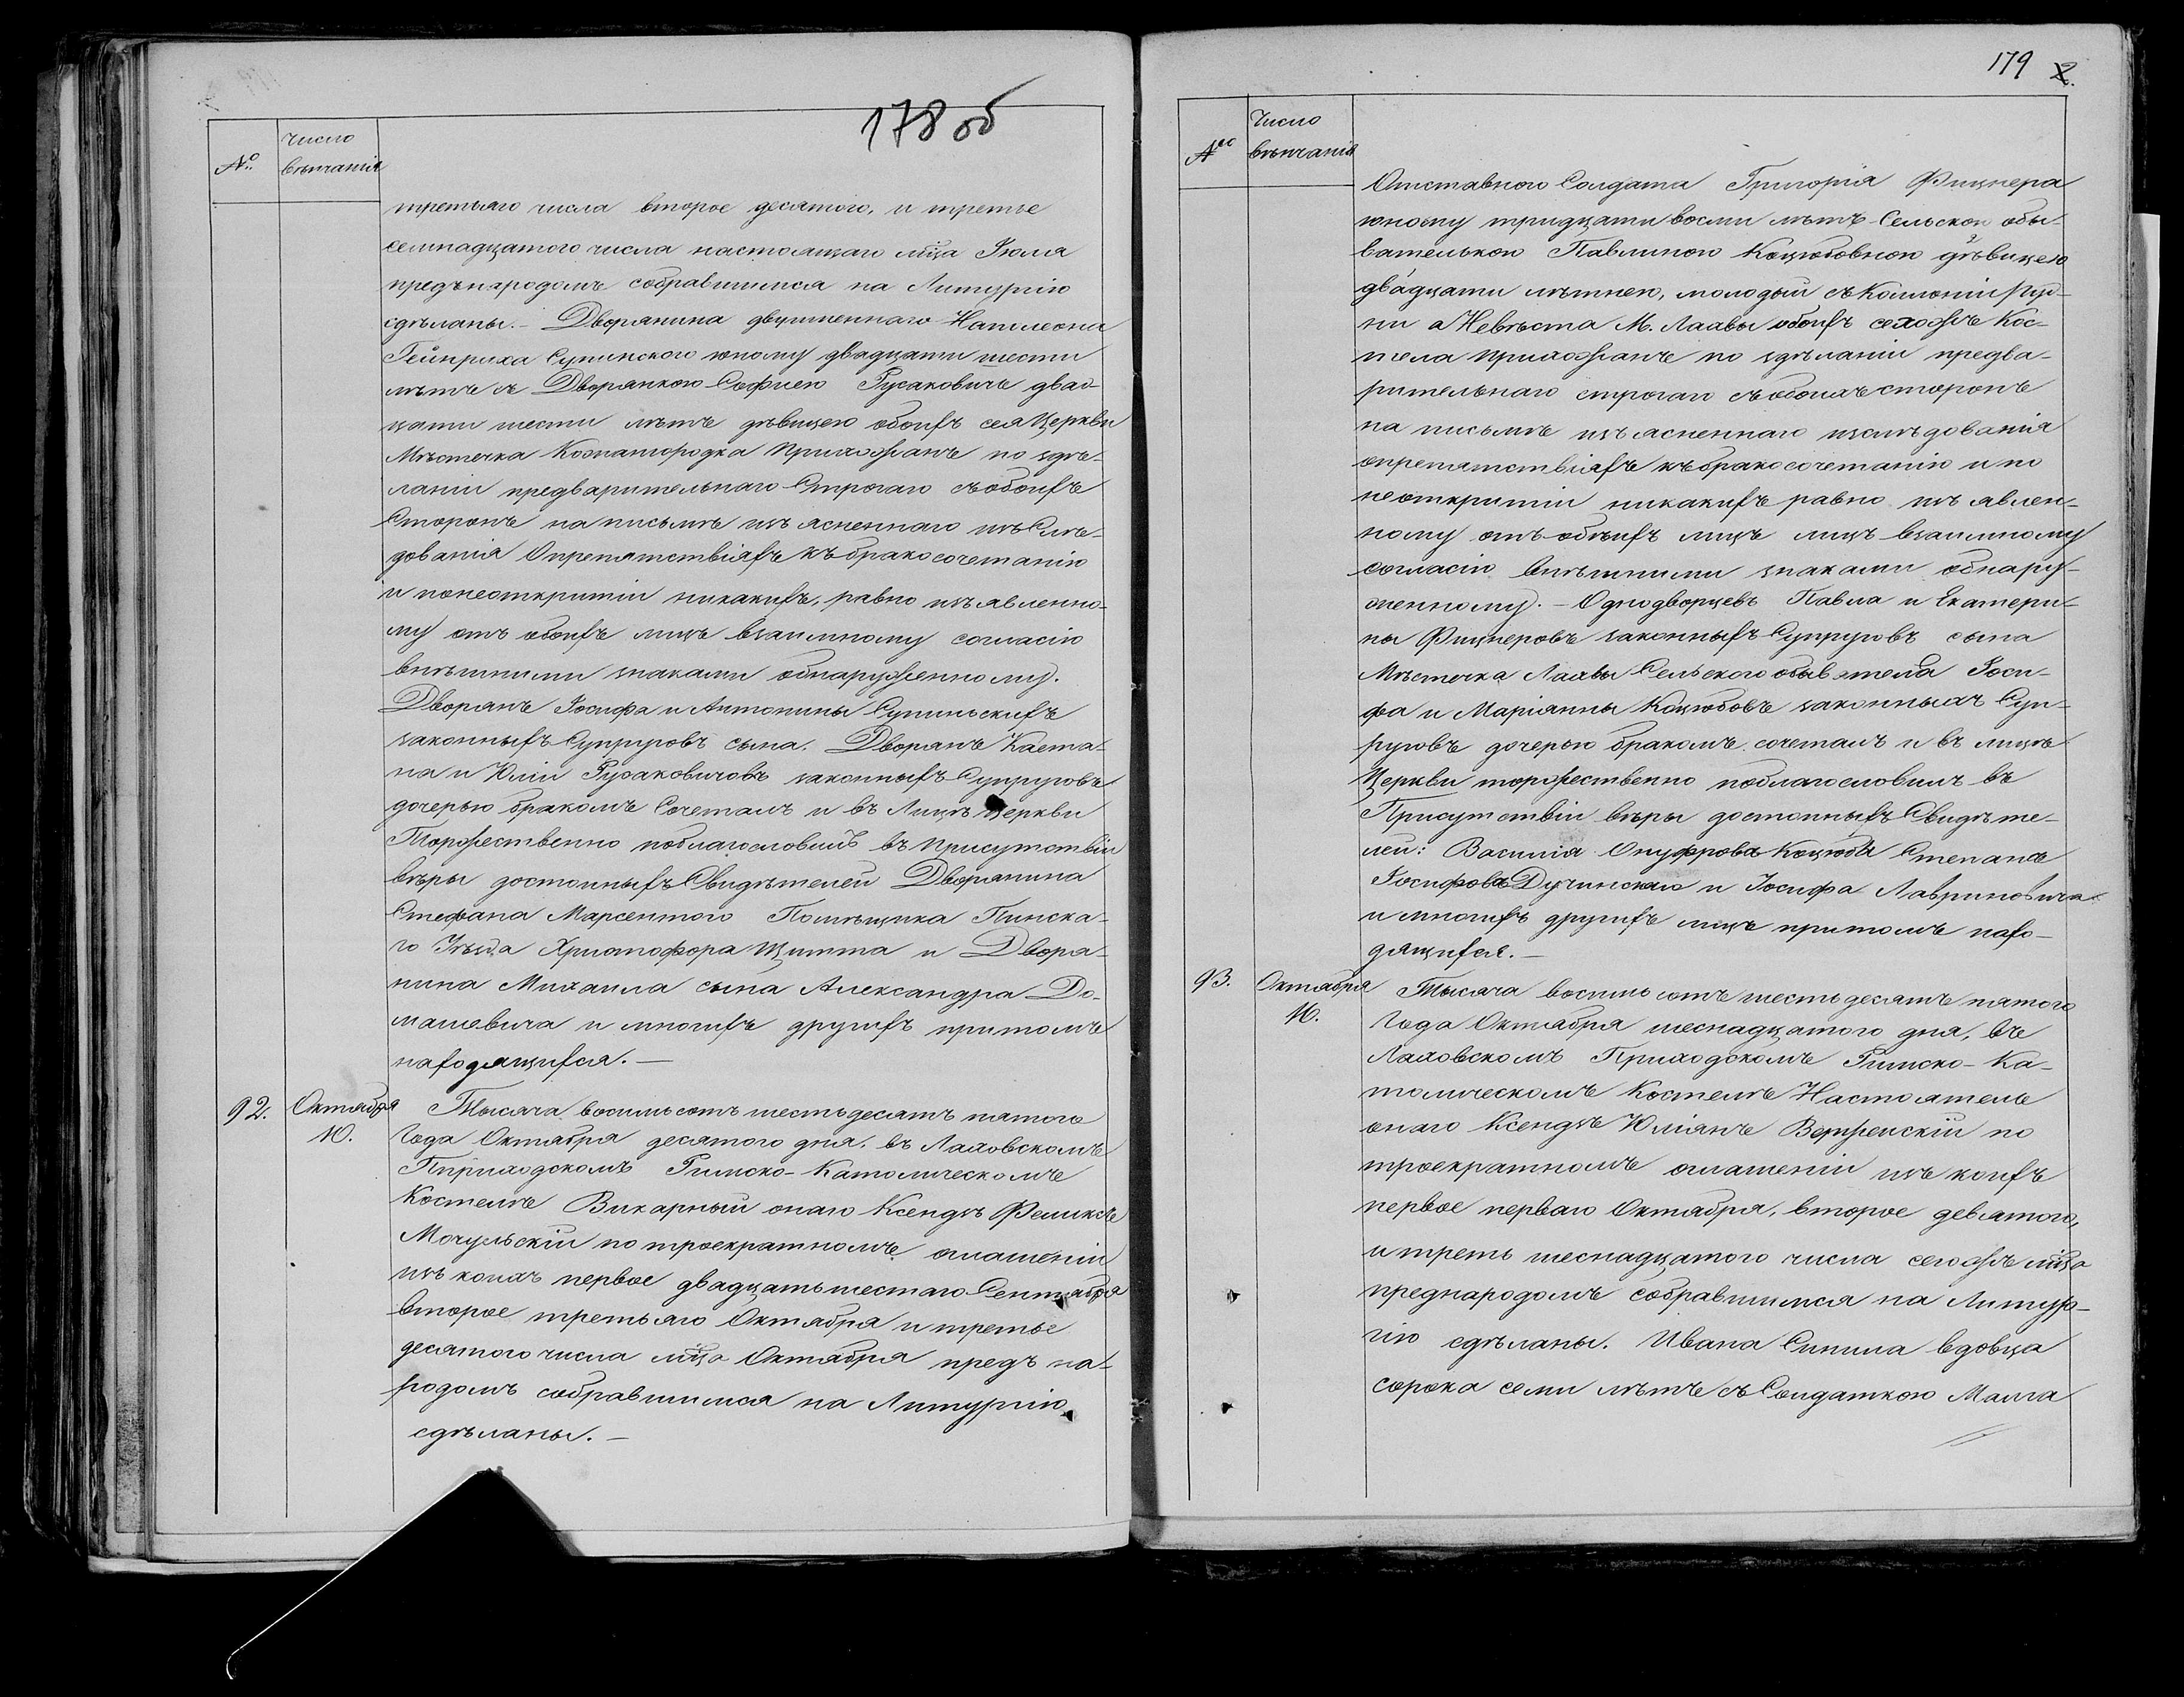 178 об
№ Число
вѣнчанія
третьяго числа второе десятого, и третье
семнадцатого числа настоящаго мца Іюля
предънародомъ собравшимся на Литургію
сдѣланы.— Дворянина двуименнаго Наполеона
Гейнриха Супинского юному двадцати шести
лѣтъ съ Дворянкою Софиею Гусаковичъ двад-
цати шести лѣтъ дѣвицею обоихъ сея Церкви
Мѣстечка Кожангородка Прихожанъ по здѣ-
ланіи предварительнаго Строгаго съобоихъ
Сторонъ на письмѣ изъясненнаго изъСлѣ-
дованія Опрепятствіяхъ къ бракосочетанію
и понеоткритіи никакихъ, равно изъявленно-
му отъ обоихъ лицъ взаимному согласію
внѣшними знаками обнаруженному.
Дворянъ Іосифа и Антонины Супинскихъ
законныхъ Супруговъ сына. Дворянъ Каета-
на и Юліи Гусаковичовъ законныхъ Супруговъ
дочерью бракомъ Сочеталъ и въ Лицѣ Церкви
Торжественно поблагословилъ въ присутствіи
вѣры достойныхъ Свидѣтелей Дворянина
Стефана Марсентого Помѣщика Пинска-
го Уѣзда Христофора Щитта и Дворя-
нина Михаила сына Александра До-
машевича и многихъ другихъ притомъ
находящихся.—
92. Октября
10.
Тысяча восимьсотъ шестьдесятъ пятого
Года Октября десятого дня, въ Лаховскомъ
Пприходскомъ Римско-Католическомъ
Костелѣ Викарный онаго Ксендзъ Феликсъ
Мочульскій по троекратномъ оглашеніи
изъ коихъ первое двадцатьшестаго Сентября
второе третьяго Октября и третье
десятого числа мца Октября предъ на-
родомъ собравшимся на Литургію
сдѣланы.—
179 2.
№ Число
вѣнчанія
Отставного Солдата Григорія Фицнера
юному тридцати восми лѣтъ Сельской обы-
вателькой Павлиною Коцюбовною дѣвицею
двадцати лѣтнею, молодый съ Коллоніи Руд-
ни а Невѣста М. Лахвы обоихъ сегожъ Кос-
тела прихожанъ по здѣланіи предва-
рительнаго строгаго съобоихъ сторонъ
на письмѣ изъясненнаго изслѣдованія
опрепятствіяхъ къ бракосочетанію и по
неоткритіи никакихъ равно изъявлен-
ному отъ обѣихъ лицъ лицъ взаимному
согласію внѣшними знаками обнару-
женному.— Однодворцевъ Павла и Екатери-
ны Фицнеровъ законныхъ Супруговъ сына
Мѣстечка Лахвы Сельского обывателя Іоси-
фа и Маріянны Коцюбовъ законныхъ Суп-
руговъ дочерью бракомъ сочеталъ и въ лицѣ
Церкви торжественно поблагословилъ въ
Присутствіи вѣры достойныхъ Свидѣте-
лей: Василія Онуфрова Коцюбы Степана
Іосифова Дучинскаго и Іосифа Лавриновича
и многихъ другихъ лицъ притомъ нахо-
дящихся.—
93. Октября
16.
Тысяча восимьсотъ шестьдесятъ пятого
Года Октября шеснадцатого дня, въ
Лаховскомъ Приходскомъ Римско-Ка-
толическомъ Костелѣ Настоятель
онаго Ксендзъ Юліянъ Вержейскій по
троекратномъ оглашеніи изъ коихъ
первое перваго Октября, второе девятого,
и треть шеснадцатого числа сегожъ мца
преднародомъ собравшимся на Литур-
гію сдѣланы. Ивана Синила вдовца
сорока семи лѣтъ съ Солдаткою Малга